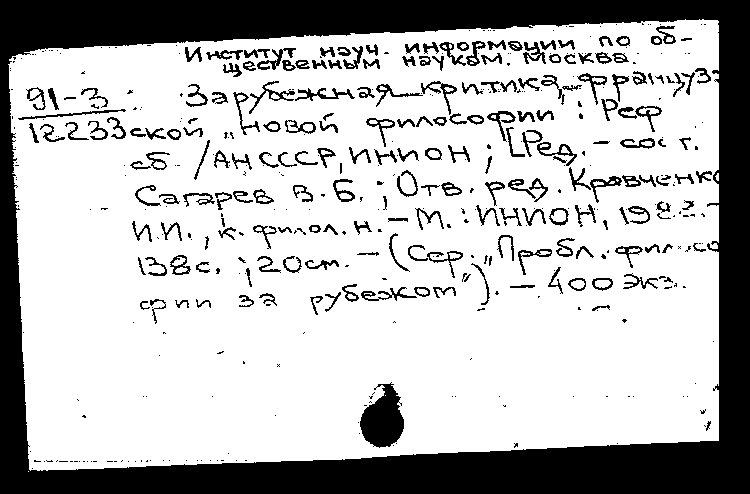 Институт науч. информации по об-
щественным наукам. Москва.
91-3 Зарубежная критика француз
12233 ской „новой философии : Реф
сб /АН СССР, ИНИОН ; [Ред. - сост.
Сагарев В. Б. ; Отв. ред. Кравченко
И.И., к. филол. н. - М. : ИНИОН,
138 с. ; 20 см. - (Сер. „Пробл. филосо
фии за рубежом"). - 400 экз.